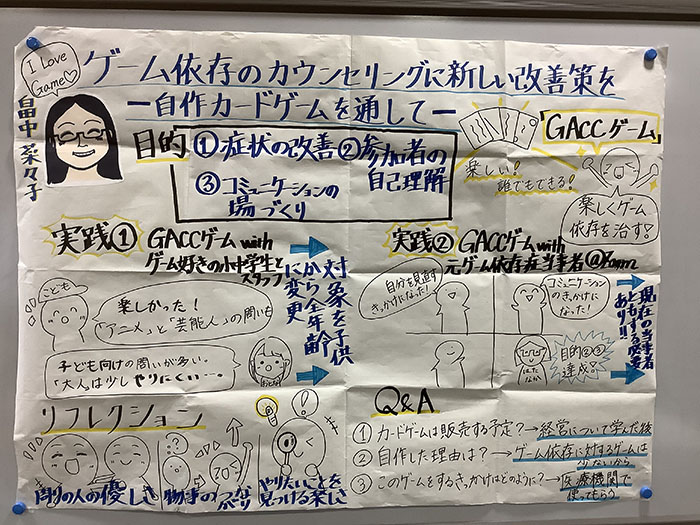 I Love
Game♡
畠中 菜々子
ゲーム依存のカウンセリングに新しい改善策を
ー自作カードゲームを通してー
目的
①症状の改善②参加者の
自己理解
③コミュニケーションの
場づくり
「GACCゲーム」
楽しい!
誰でもできる!
楽しくゲーム
依存を治す!
実践①
GACCゲーム with
ゲーム好きの小中学生と
スタッフ
対象を子供
から全年齢
に変更
こども
楽しかった!
「アニメ」と「芸能人」の問いも
子ども向けの問いが多い。
「大人」は少しやりにくい…。
おとな
実践②
GACCゲーム with
元ゲーム依存症当事者@Zoom
自分を見直す
きっかけになった!
コミュニケーション
のきっかけに
なった!
はたなか
目的②③
達成!
現在の当事者
ともする必要
あり!!
リフレクション
周りの人の優しさ
物事のつながり
やりたいことを
見つける楽しさ
Q&A
①カードゲームは販売する予定?→経営について学んだ後
②自作した理由は?→ゲーム依存に対するゲームは
少ないから
③このゲームをするきっかけはどのように?→医療機関で
使ってもらう